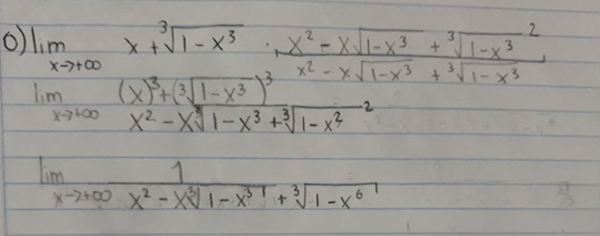 o) lim x→+∞ x + ∛(1 - x³) · (x² - x√(1-x³) + ∛(1-x³)²) / (x² - x√(1-x³) + ∛(1-x³))
lim x→+∞ ((x)³ + (∛(1-x³))³) / (x² - x∛(1-x³) + ∛(1-x²)²)
lim x→+∞ 1 / (x² - x∛(1-x³) + ∛(1-x⁶))